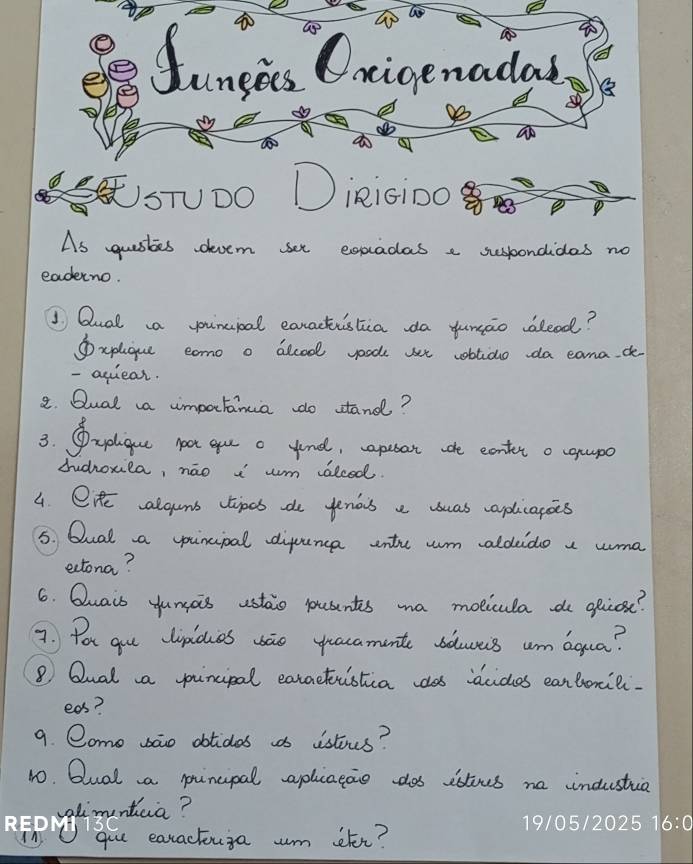 Funções Oxigenadas
ESTUDO DIRIGIDO
As questões devem ser copiadas e respondidas no
caderno.
1. Qual a principal característica da função álcool?
Explique como o álcool pode ser obtido da cana-de-
- açúcar.
2. Qual a importância do etanol?
3. Explique por que o fenol, apesar de conter o grupo
hidroxila, não é um álcool.
4. Cite alguns tipos de fenóis e suas aplicações
5. Qual a principal diferença entre um aldeído e uma
cetona?
6. Quais funções estão presentes na molécula de glicose?
7. Por que lipídios são fracamente solúveis em água?
8. Qual a principal característica dos ácidos carboxíli-
cos?
9. Como são obtidos os ésteres?
10. Qual a principal aplicação dos ésteres na indústria
alimentícia?
11. O que caracteriza um éter?
REDMI 13C
19/05/2025 16:0